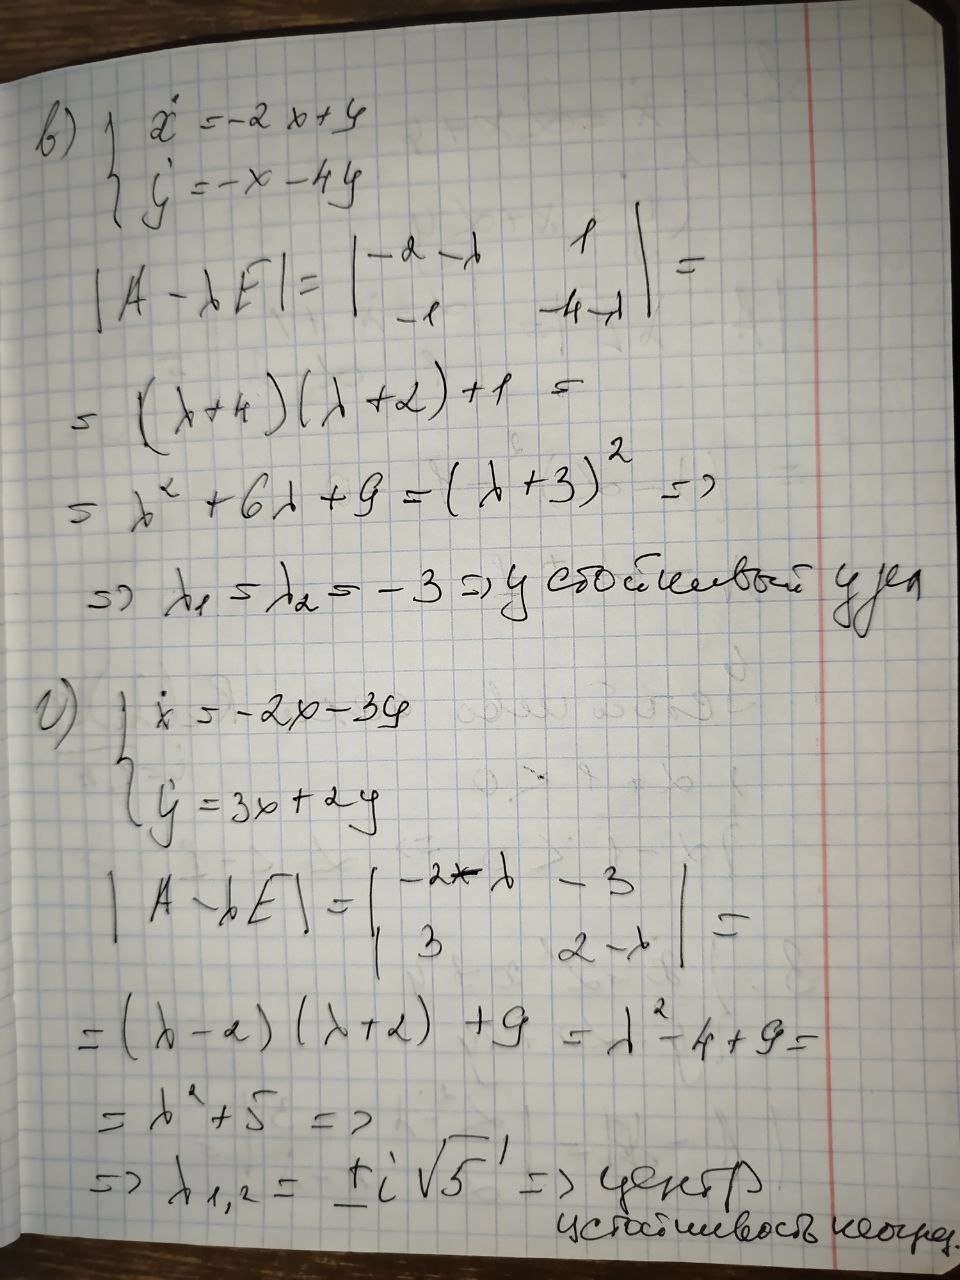 в) { ẋ = -2x + y
ẏ = -x - 4y
|A - λE| = | -2 - λ 1 | =
| -1 -4-λ |
= (λ+4)(λ+2) + 1 =
= λ² + 6λ + 9 = (λ + 3)² =>
=> λ₁ = λ₂ = -3 => устойчивый узел
г) { ẋ = -2x - 3y
ẏ = 3x + 2y
|A - λE| = | -2 - λ - 3 | =
| 3 2 - λ |
= (λ - 2)(λ + 2) + 9 = λ² - 4 + 9 =
= λ² + 5 =>
=> λ₁,₂ = ± i √5 => центр
устойчивость неопред.